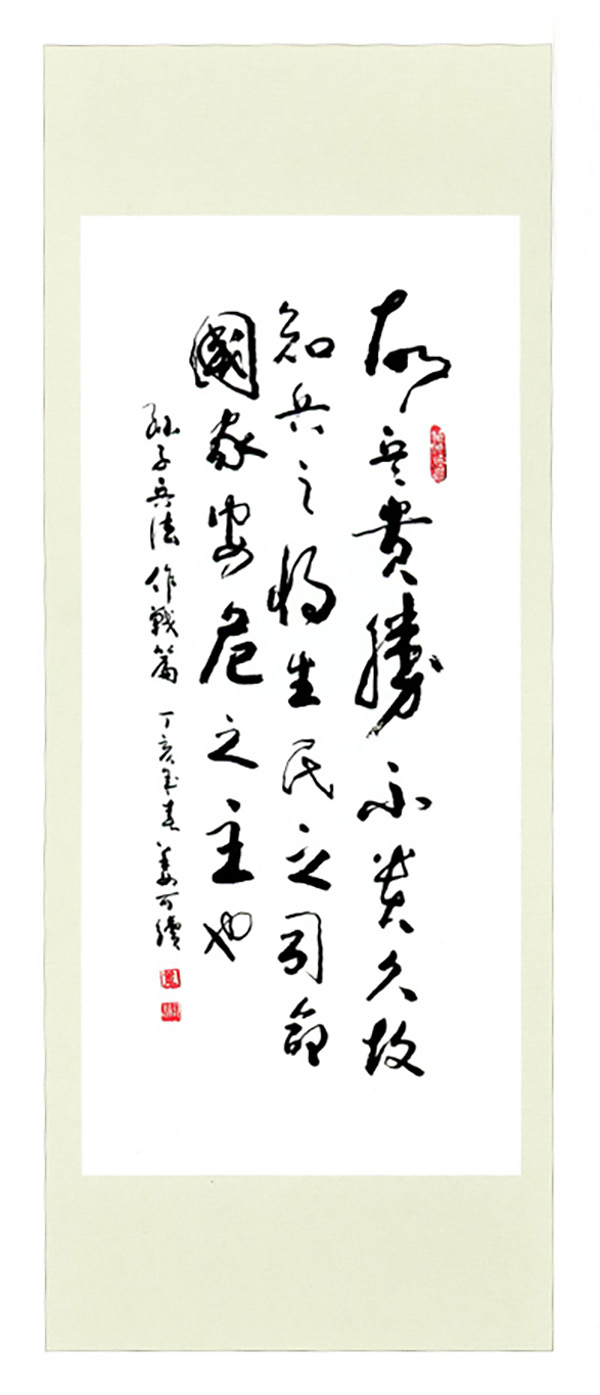 故兵貴勝不貴久故
知兵之将生民之司命
國家安危之主也
孫子兵法作戰篇 丁亥年春 姜可